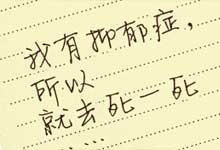 我有抑郁症，
所以
就去死一死
……